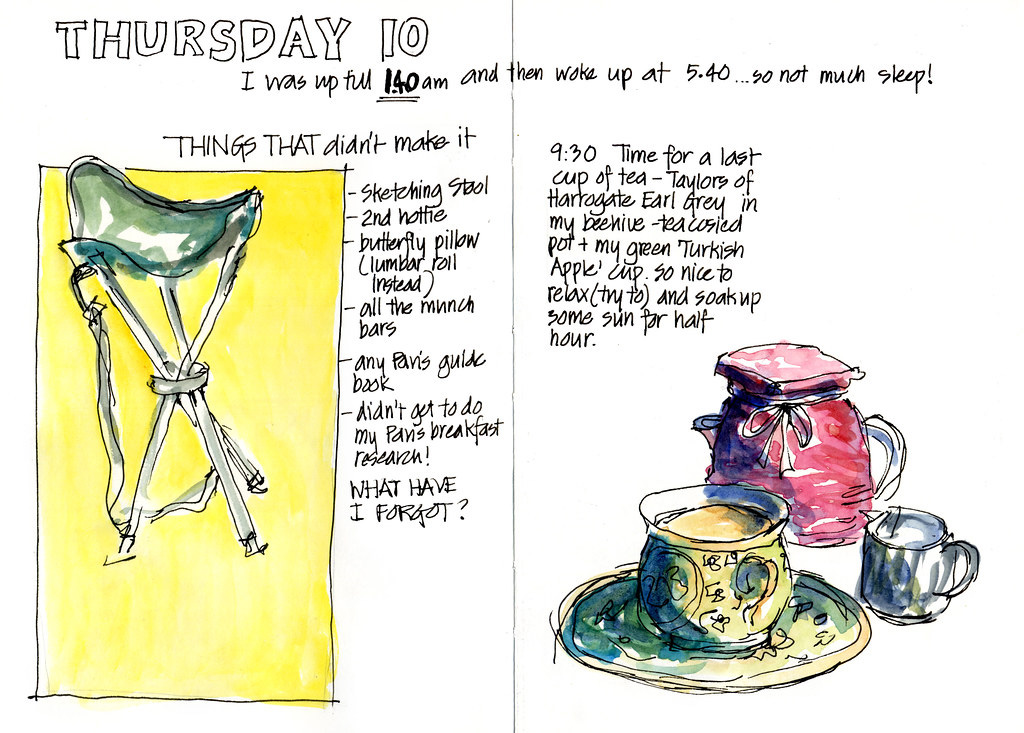 THURSDAY 10
I was up till 1.40 am and then woke up at 5.40...so not much sleep!
THINGS THAT didn't make it
- Sketching Stool
- 2nd hottie
- butterfly pillow
(lumbar roll
instead)
- all the munch
bars
- any Paris guide
book
- didn't get to do
my Paris breakfast
research!
WHAT HAVE
I FORGOT?
9:30 Time for a last
cup of tea - Taylors of
Harrogate Earl Grey in
my beehive - tea cosied
pot + my green 'Turkish
Apple' cup. so nice to
relax (try to) and soak up
some sun for half
hour.